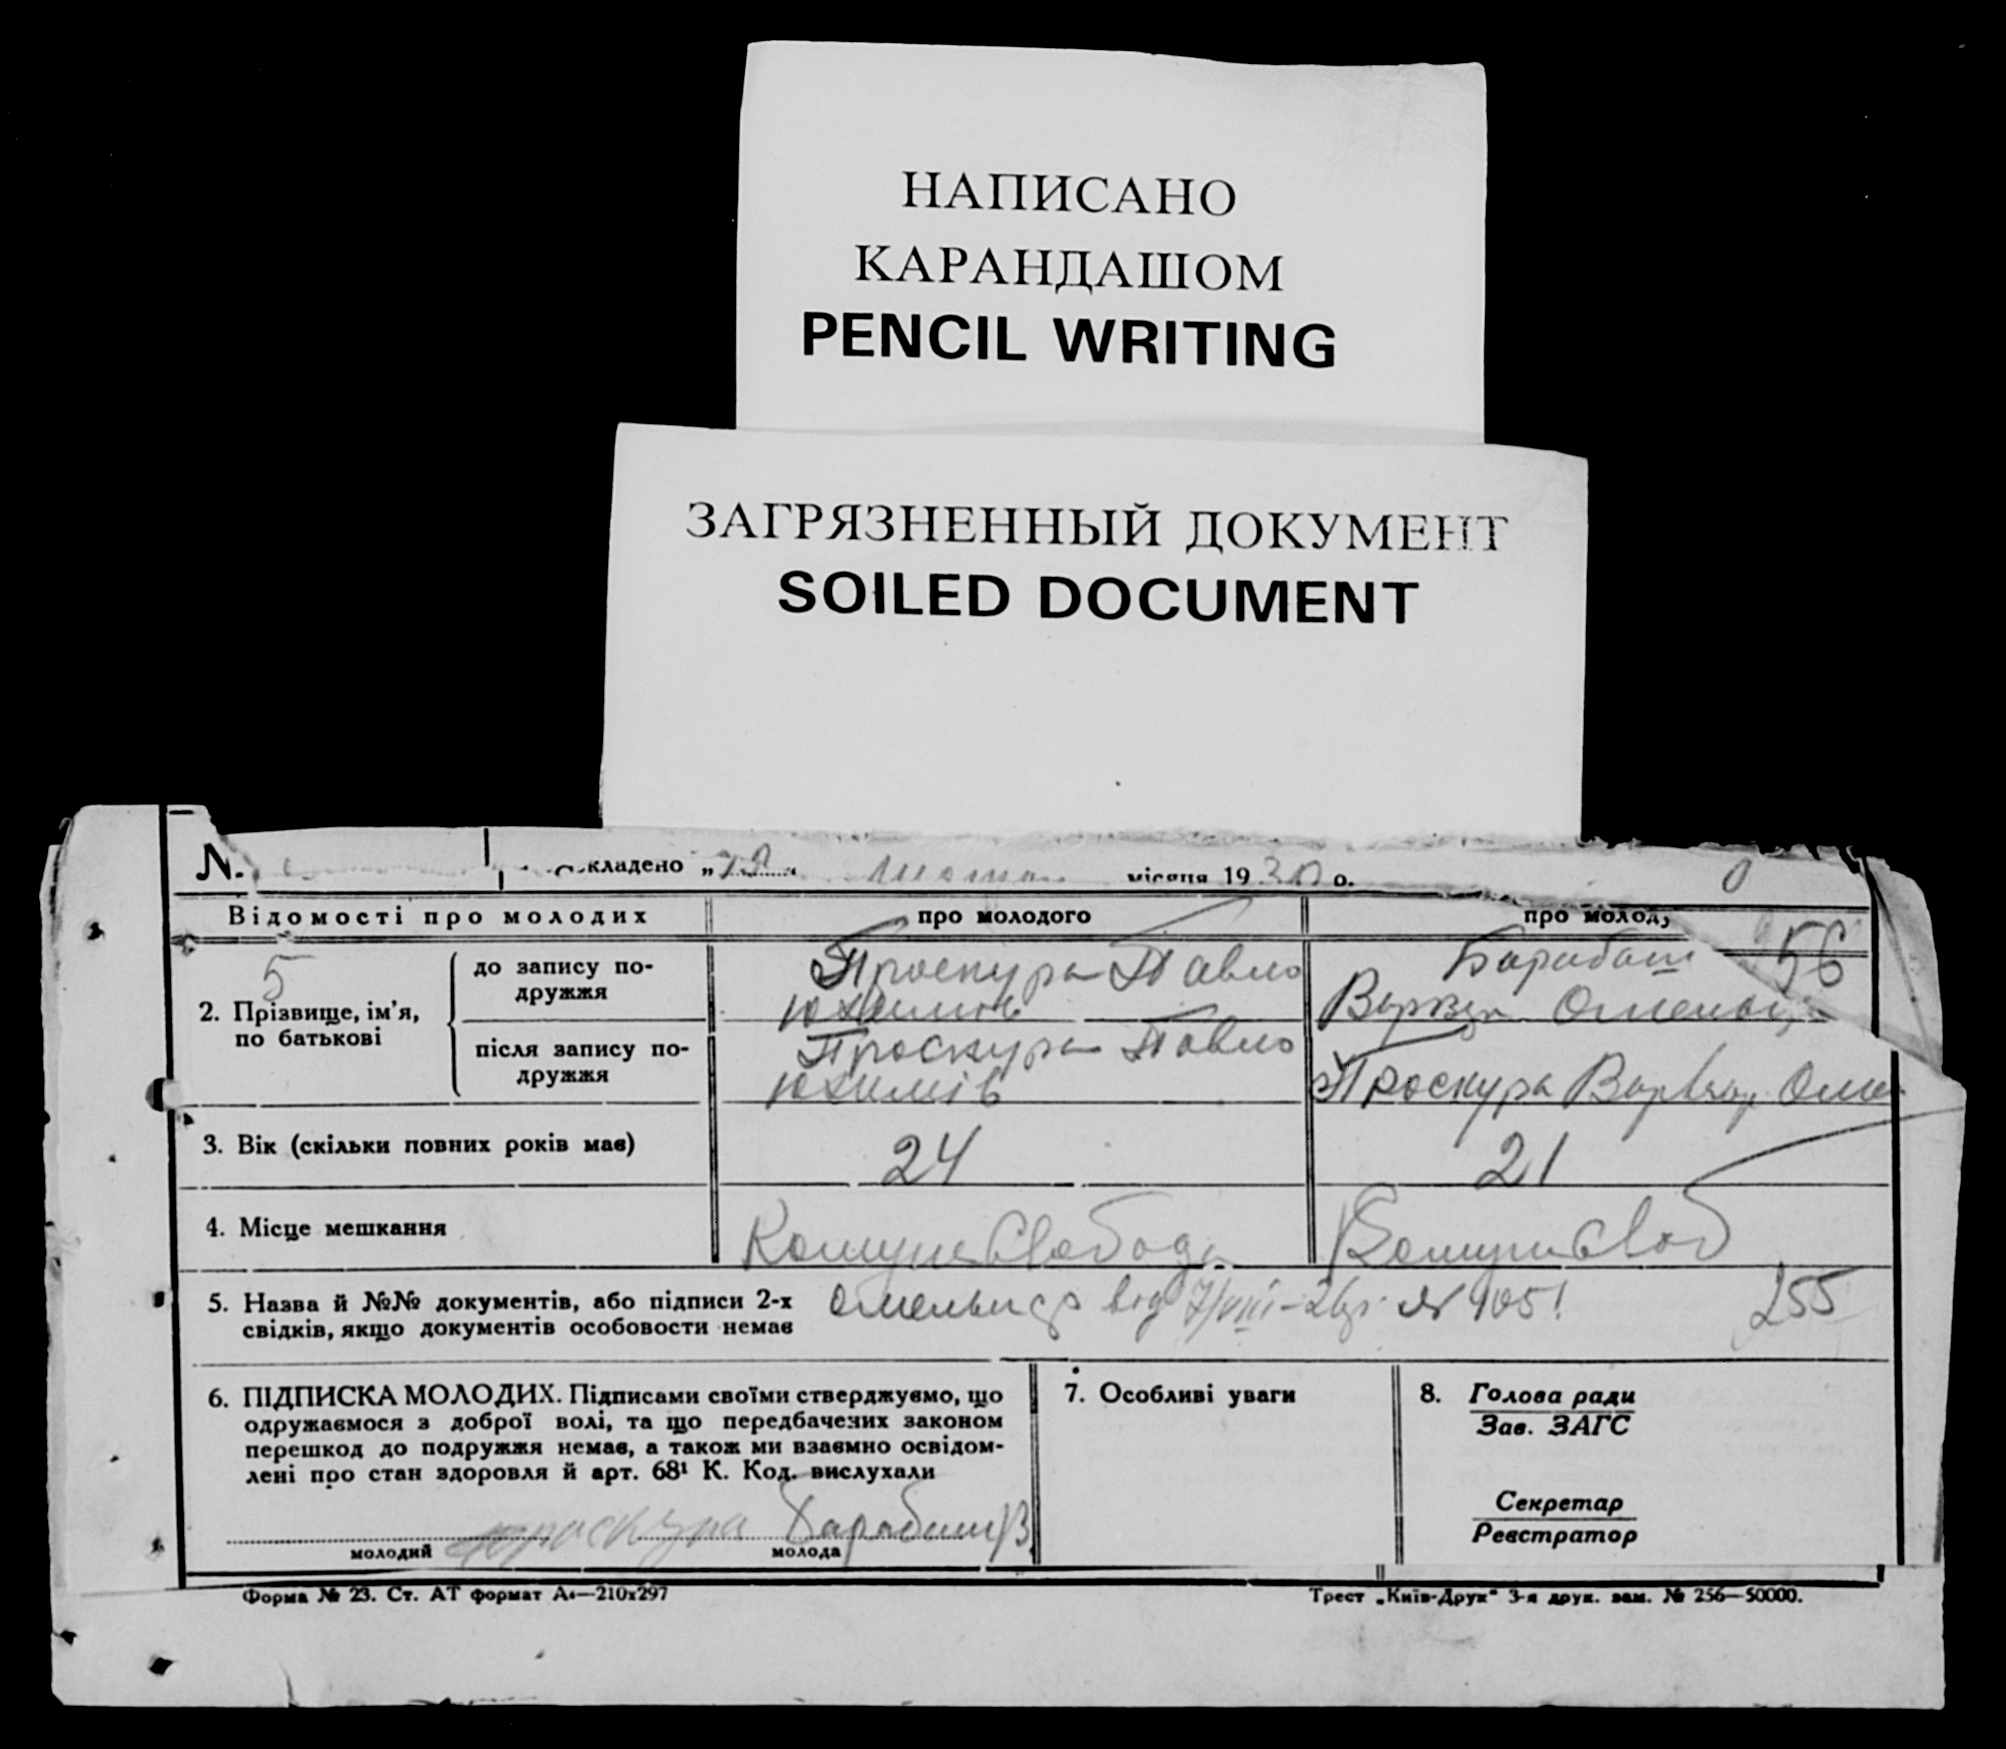 НАПИСАНО
КАРАНДАШОМ
PENCIL WRITING
ЗАГРЯЗНЕННЫЙ ДОКУМЕНТ
SOILED DOCUMENT
кладено „ місяця 1930 р.
Відомості про молодих про молодого про молоду
5 56
2. Прізвище, ім'я, по батькові
до запису подружжя Проскура Павло Юхимів Барабаш
після запису подружжя Проскура Павло Юхимів Проскура Варвар Оме
3. Вік (скільки повних років має) 24 21
4. Місце мешкання Комуна Свобода Комуна Своб
5. Назва й №№ документів, або підписи 2-х від 7/VIII № 1051 255
свідків, якщо документів особовости немає
6. ПІДПИСКА МОЛОДИХ. Підписами своїми стверджуємо, що
одружаємося з доброї волі, та що передбачених законом
перешкод до подружжя немає, а також ми взаємно освідом-
лені про стан здоровля й арт. 68¹ К. Код. вислухали
Проскура Барабаш В
молодий молода
7. Особливі уваги
8. Голова ради
Зав. ЗАГС
Секретар
Реєстратор
Форма № 23. Ст. АТ формат А4—210x297 Трест „Київ-Друк" 3-я друк. зам. № 256—50000.